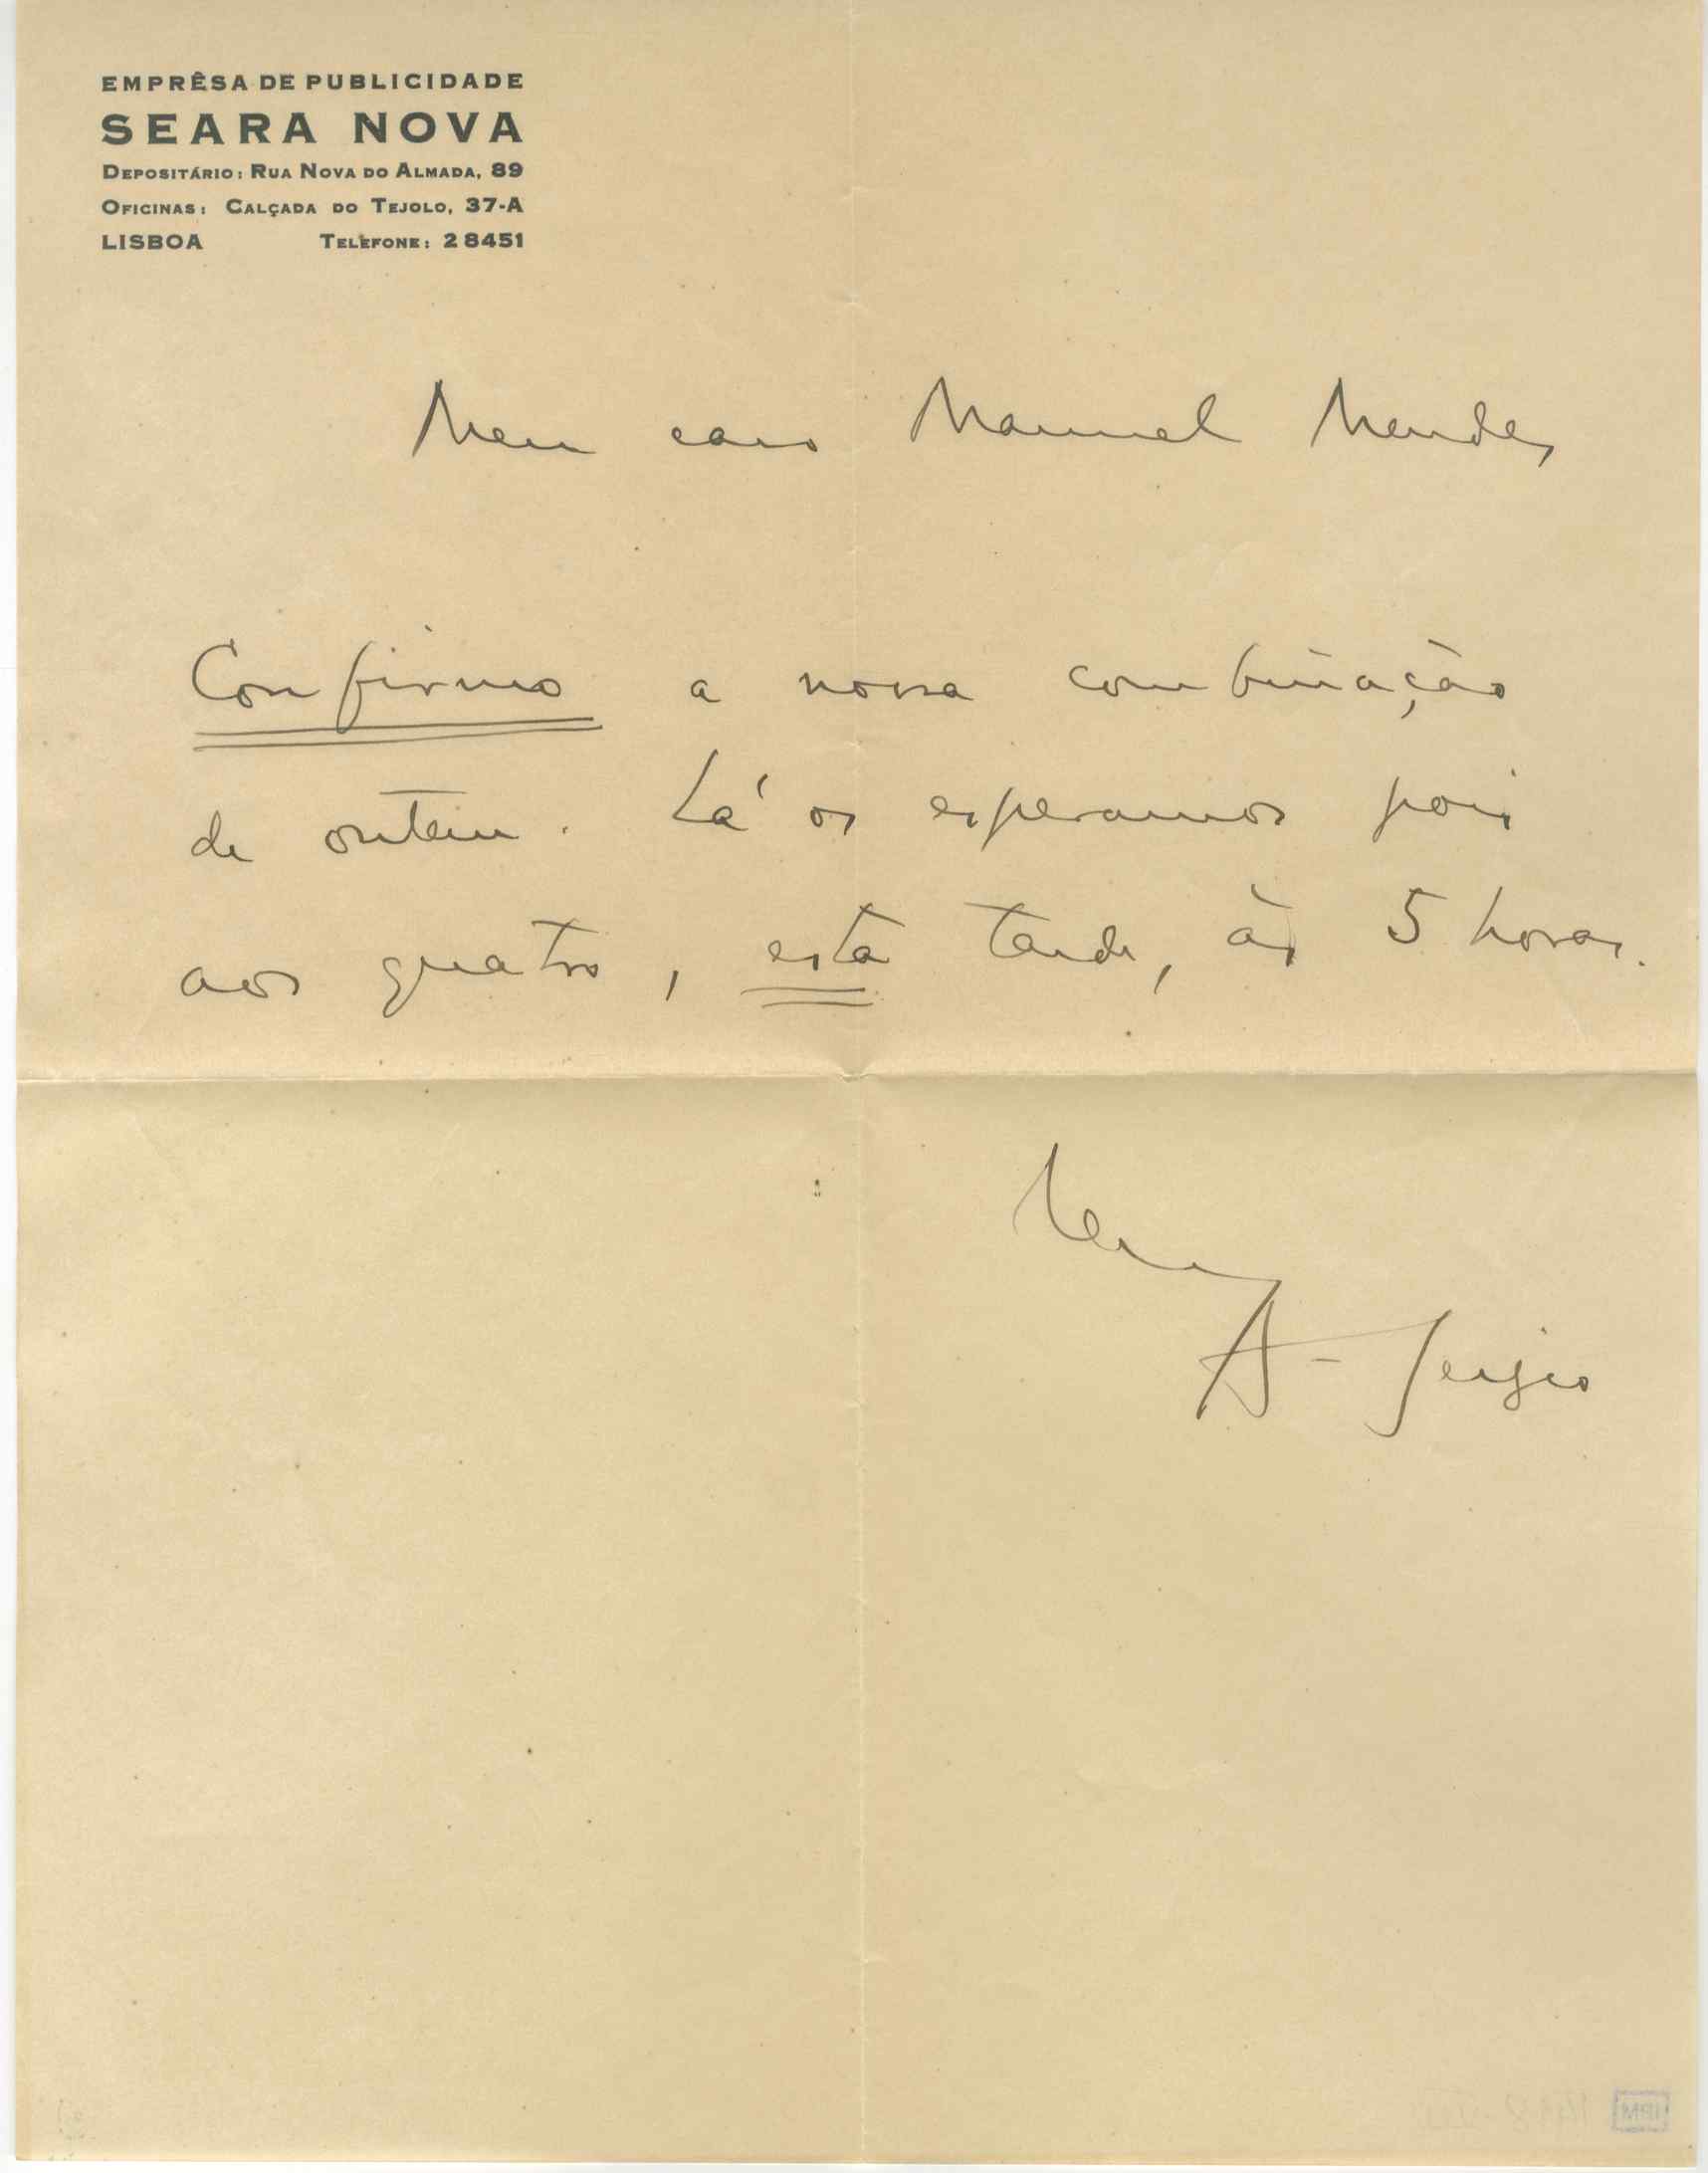 EMPRÊSA DE PUBLICIDADE
SEARA NOVA
DEPOSITÁRIO: RUA NOVA DO ALMADA, 89
OFICINAS: CALÇADA DO TEJOLO, 37-A
LISBOA TELEFONE: 28451
Meu caro Manuel Mendes
Confirmo a nossa combinação
de ontem. Lá os esperamos pois
aos quatro, esta tarde, às 5 horas.
A. Sérgio